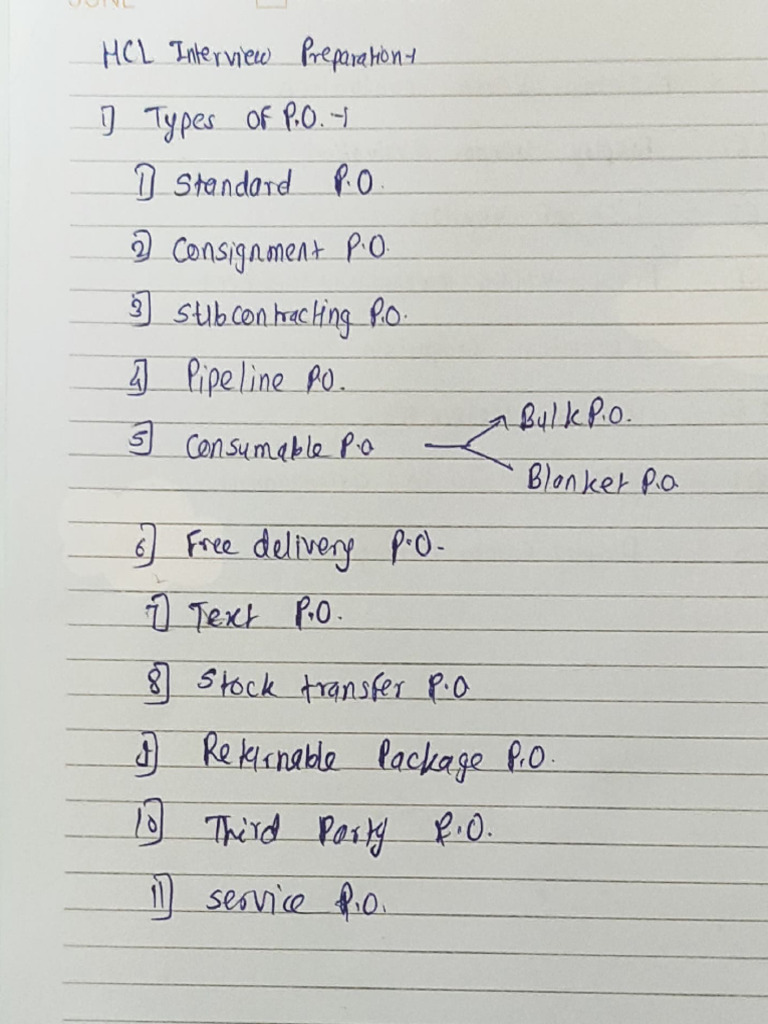 JUNE
HCL Interview Preparation-1
1] Types of P.O. -1
1] Standard P.O.
2] Consignment P.O.
3] Subcontracting P.O.
4] Pipeline P.O.
5] Consumable P.O
Bulk P.O.
Blanket P.O
6] Free delivery P.O-
7] Text P.O.
8] Stock transfer P.O
9] Returnable Package P.O.
10] Third Party P.O.
11] service P.O.